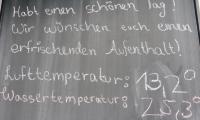 Habt einen schönen Tag!
Wir wünschen euch einen
erfrischenden Aufenthalt!
Lufttemperatur: 13,2°
Wassertemperatur: 25,3°